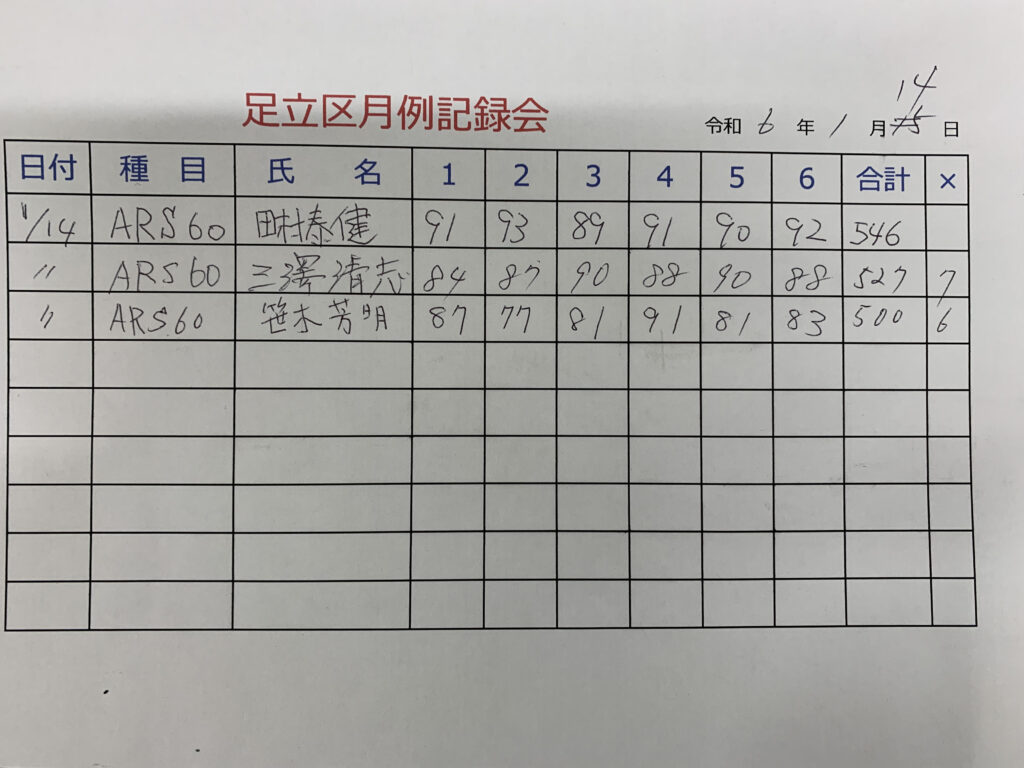 足立区月例記録会
令和 6 年 1 月 14 日
日付 種目 氏名 1 2 3 4 5 6 合計 ×
1/14 ARS60 田村泰健 91 93 89 91 90 92 546
〃 ARS60 三澤清志 84 87 90 88 90 88 527 7
〃 ARS60 笹木芳明 87 77 81 91 81 83 500 6